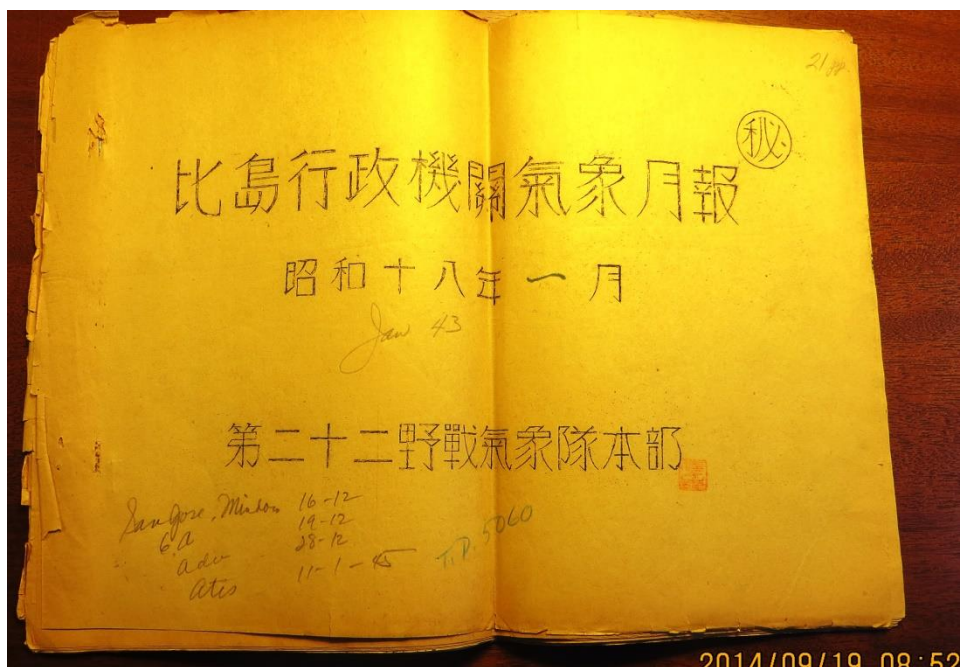 秘
比島行政機關氣象月報
昭和十八年一月
Jan 43
第二十二野戰氣象隊本部
San Jose, Mindoro 16-12
6 A 19-12
Adv 28-12
Atis 11-1-45
T.D. 5060
2014/09/19 08:52